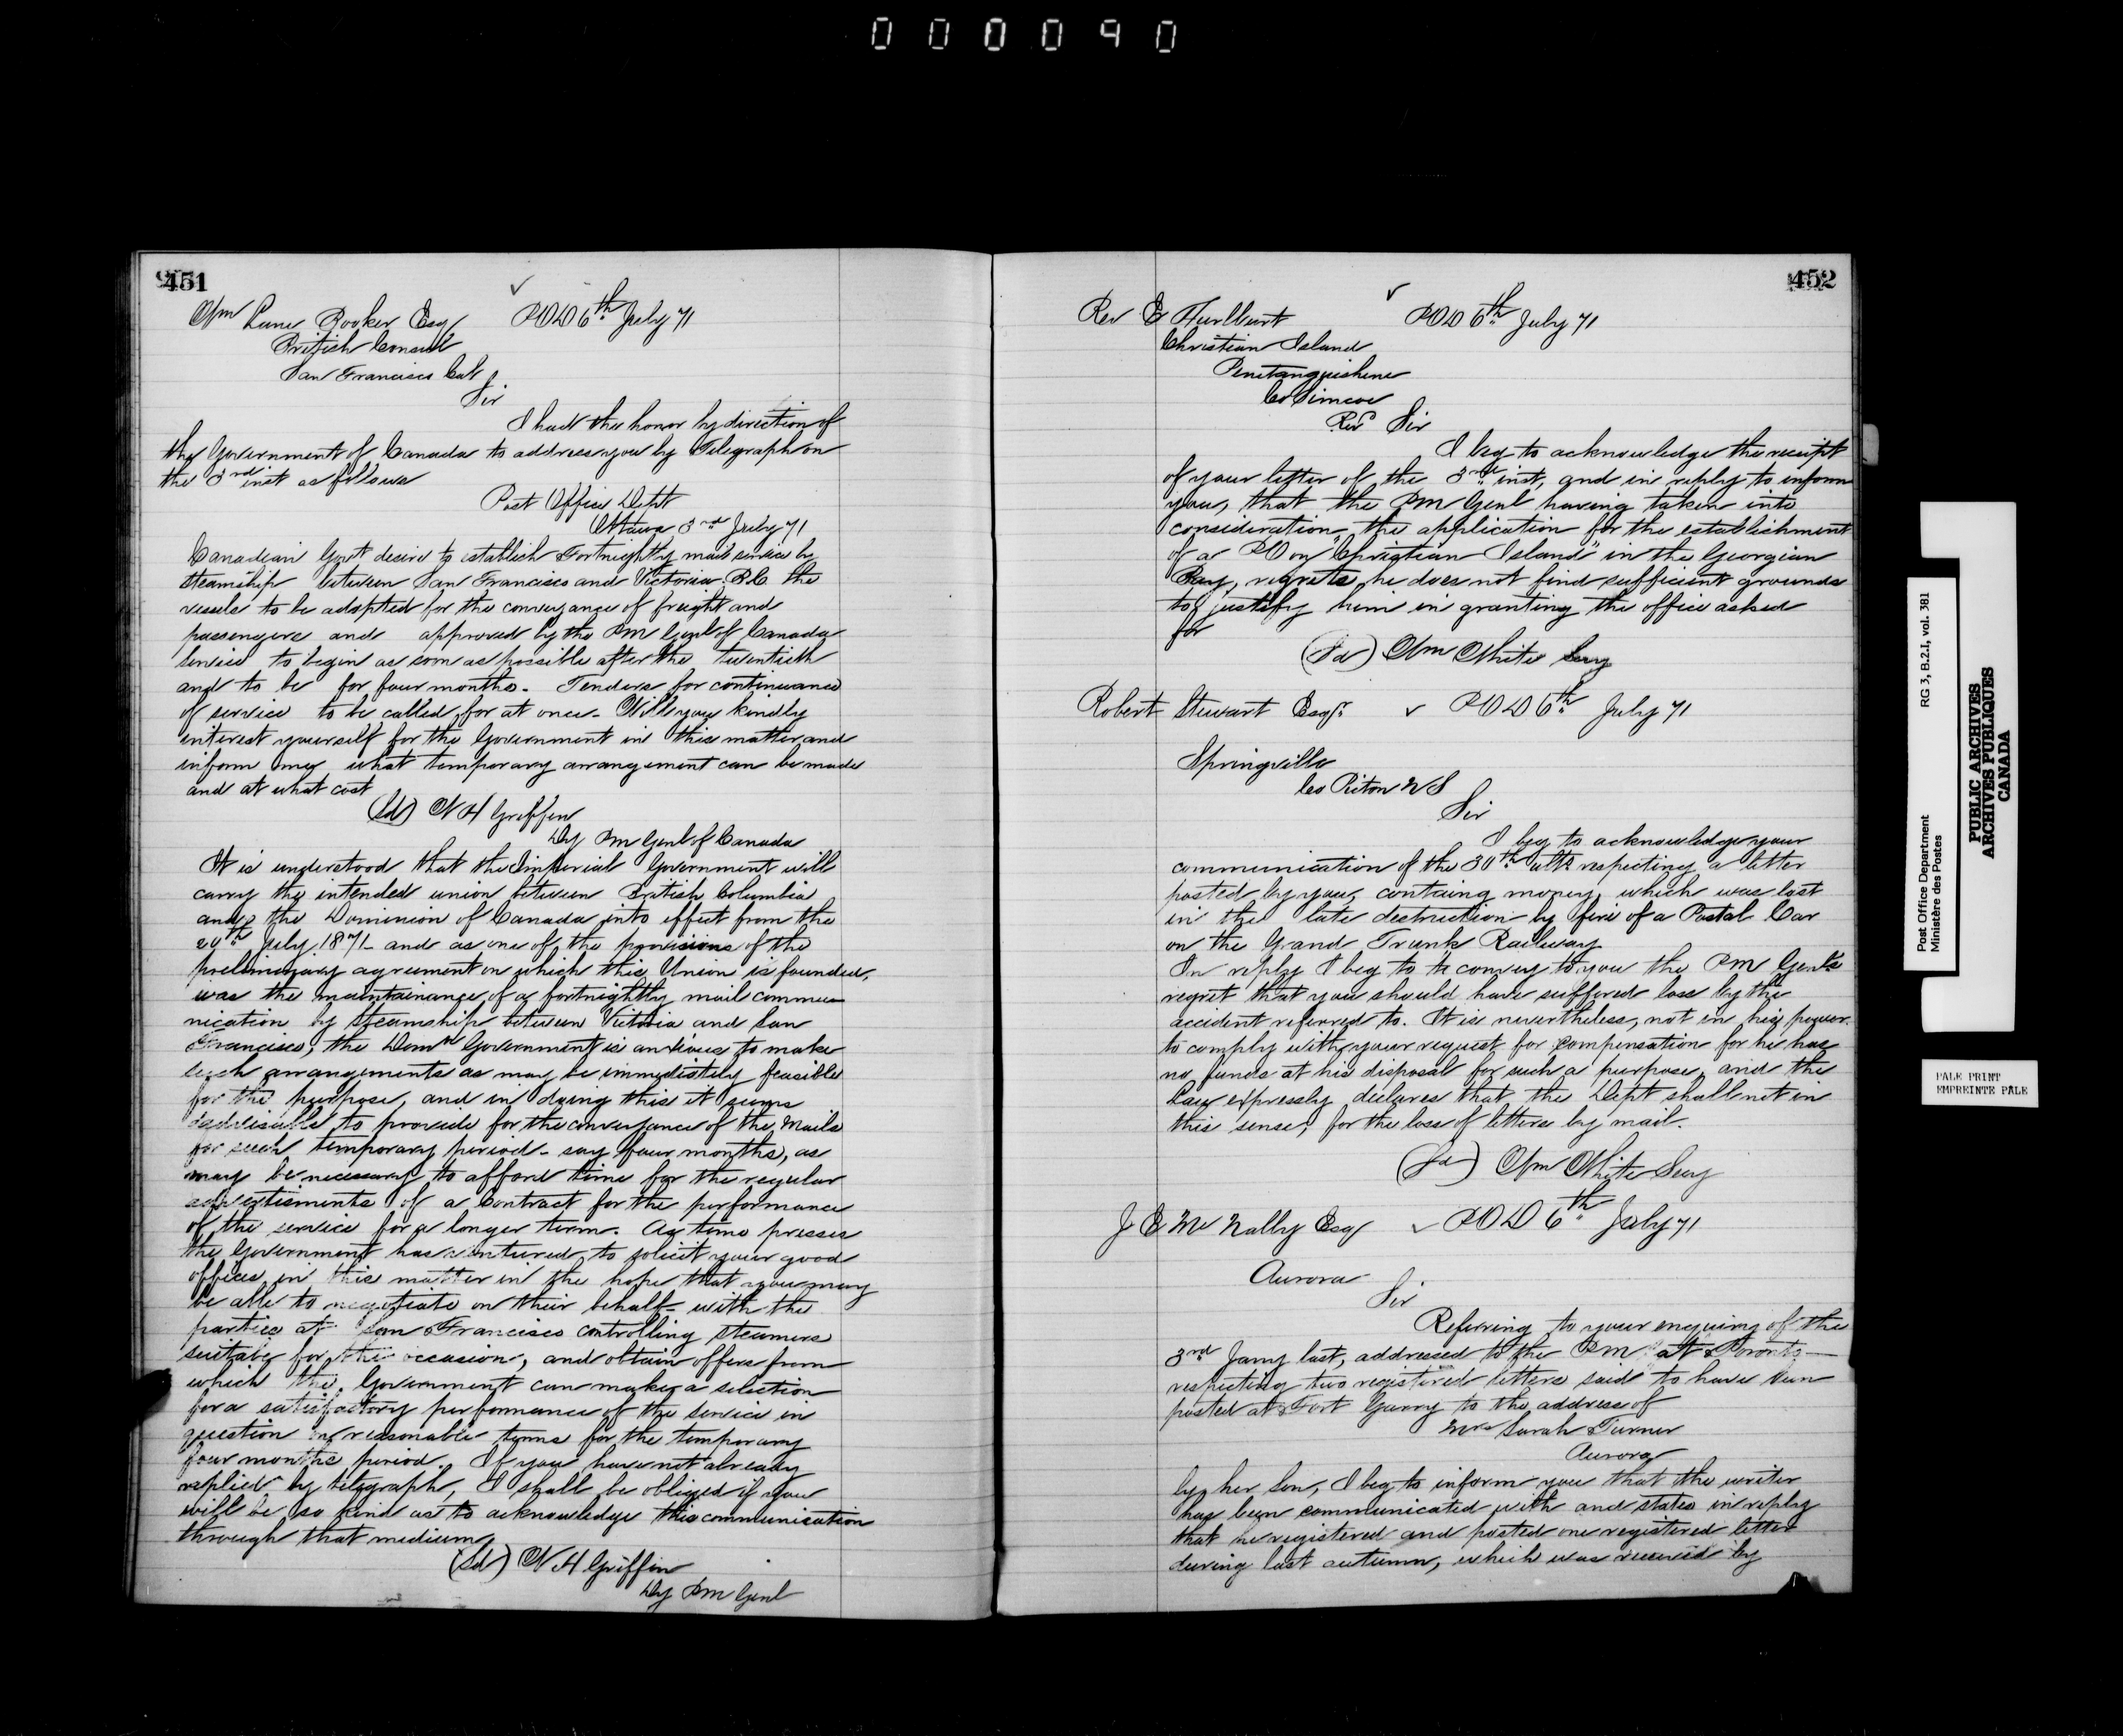 000090
451
Wm Lane Booker Esq POD 6th July 71
British Consul
San Francisco Cal
Sir
I had the honor by direction of
the Government of Canada to address you by Telegraph on
the 3rd inst as follows
Post Office Dept
Ottawa 3rd July 71
Canadian Govt desire to establish Fortnightly mail service by
steamship between San Francisco and Victoria B.C. the
vessels to be adapted for the conveyance of freight and
passengers and approved by the PM Genl of Canada
service to begin as soon as possible after the twentieth
and to be for four months. Tenders for continuance
of service to be called for at once. Will you kindly
interest yourself for the Government in this matter and
inform me what temporary arrangement can be made
and at what cost
(Sd) W H Griffin
Dy PM Genl of Canada
It is understood that the Imperial Government will
carry the intended union between British Columbia
and the Dominion of Canada into effect from the
20th July 1871 and as one of the provisions of the
preliminary agreement on which this Union is founded,
was the maintainance of a fortnightly mail commu
nication by steamship between Victoria and San
Francisco, the Domn Government is anxious to make
such arrangements as may be immediately feasible
for the purpose, and in doing this it seems
advisable to provide for the conveyance of the Mails
for such temporary period - say four months, as
may be necessary to afford time for the regular
advertisments of a Contract for the performance
of the service for a longer term. As time presses
the Government has ventured to solicit your good
offices in this matter in the hope that you may
be able to negotiate on their behalf with the
parties at San Francisco controlling steamers
suitable for the occasion, and obtain offers from
which the Government can make a selection
for a satisfactory performance of the service in
question on reasonable terms for the temporary
four months period. If you have not already
replied by telegraph, I shall be obliged if you
will be so kind as to acknowledge this communication
through that medium
(Sd) W H Griffin
Dy PM Genl
452
Rev E Hurlburt POD 6th July 71
Christian Island
Penetanguishene
Co Simcoe
Revd Sir
I beg to acknowledge the receipt
of your letter of the 3rd inst, and in reply to inform
you, that the PM Genl having taken into
consideration, the application for the establishment
of a PO on "Christian Island" in the Georgian
Bay, regrets, he does not find sufficient grounds
to justify him in granting the office asked
for
(Sd) Wm White Secy
Robert Stewart Esqr POD 6th July 71
Springville
Co Pictou N S
Sir
I beg to acknowledge your
communication of the 30th ulto respecting a letter
posted by you, containg money, which was lost
in the late destruction by fire of a Postal Car
on the Grand Trunk Railway
In reply I beg to convey to you the PM Genl's
regret that you should have suffered loss by the
accident referred to. It is nevertheless, not in his power
to comply with your request for compensation for he has
no funds at his disposal for such a purpose, and the
Law expressly declares that the Dept shall not in
this sense, for the loss of letters by mail.
(Sd) Wm White Secy
J E McNally Esq POD 6th July 71
Aurora
Sir
Referring to your enquiry of the
3rd Jany last, addressed to the PM at Toronto
respecting two registered letters said to have been
posted at Fort Garry to the address of
Mrs Sarah Turner
Aurora
by her son, I beg to inform you that the writer
has been communicated with and states in reply
that he registered and posted one registered letter
during last autumn, which was received by
Post Office Department RG 3, B.2.I, vol. 381
Ministère des Postes
PUBLIC ARCHIVES
ARCHIVES PUBLIQUES
CANADA
PALE PRINT
EMPREINTE PÂLE